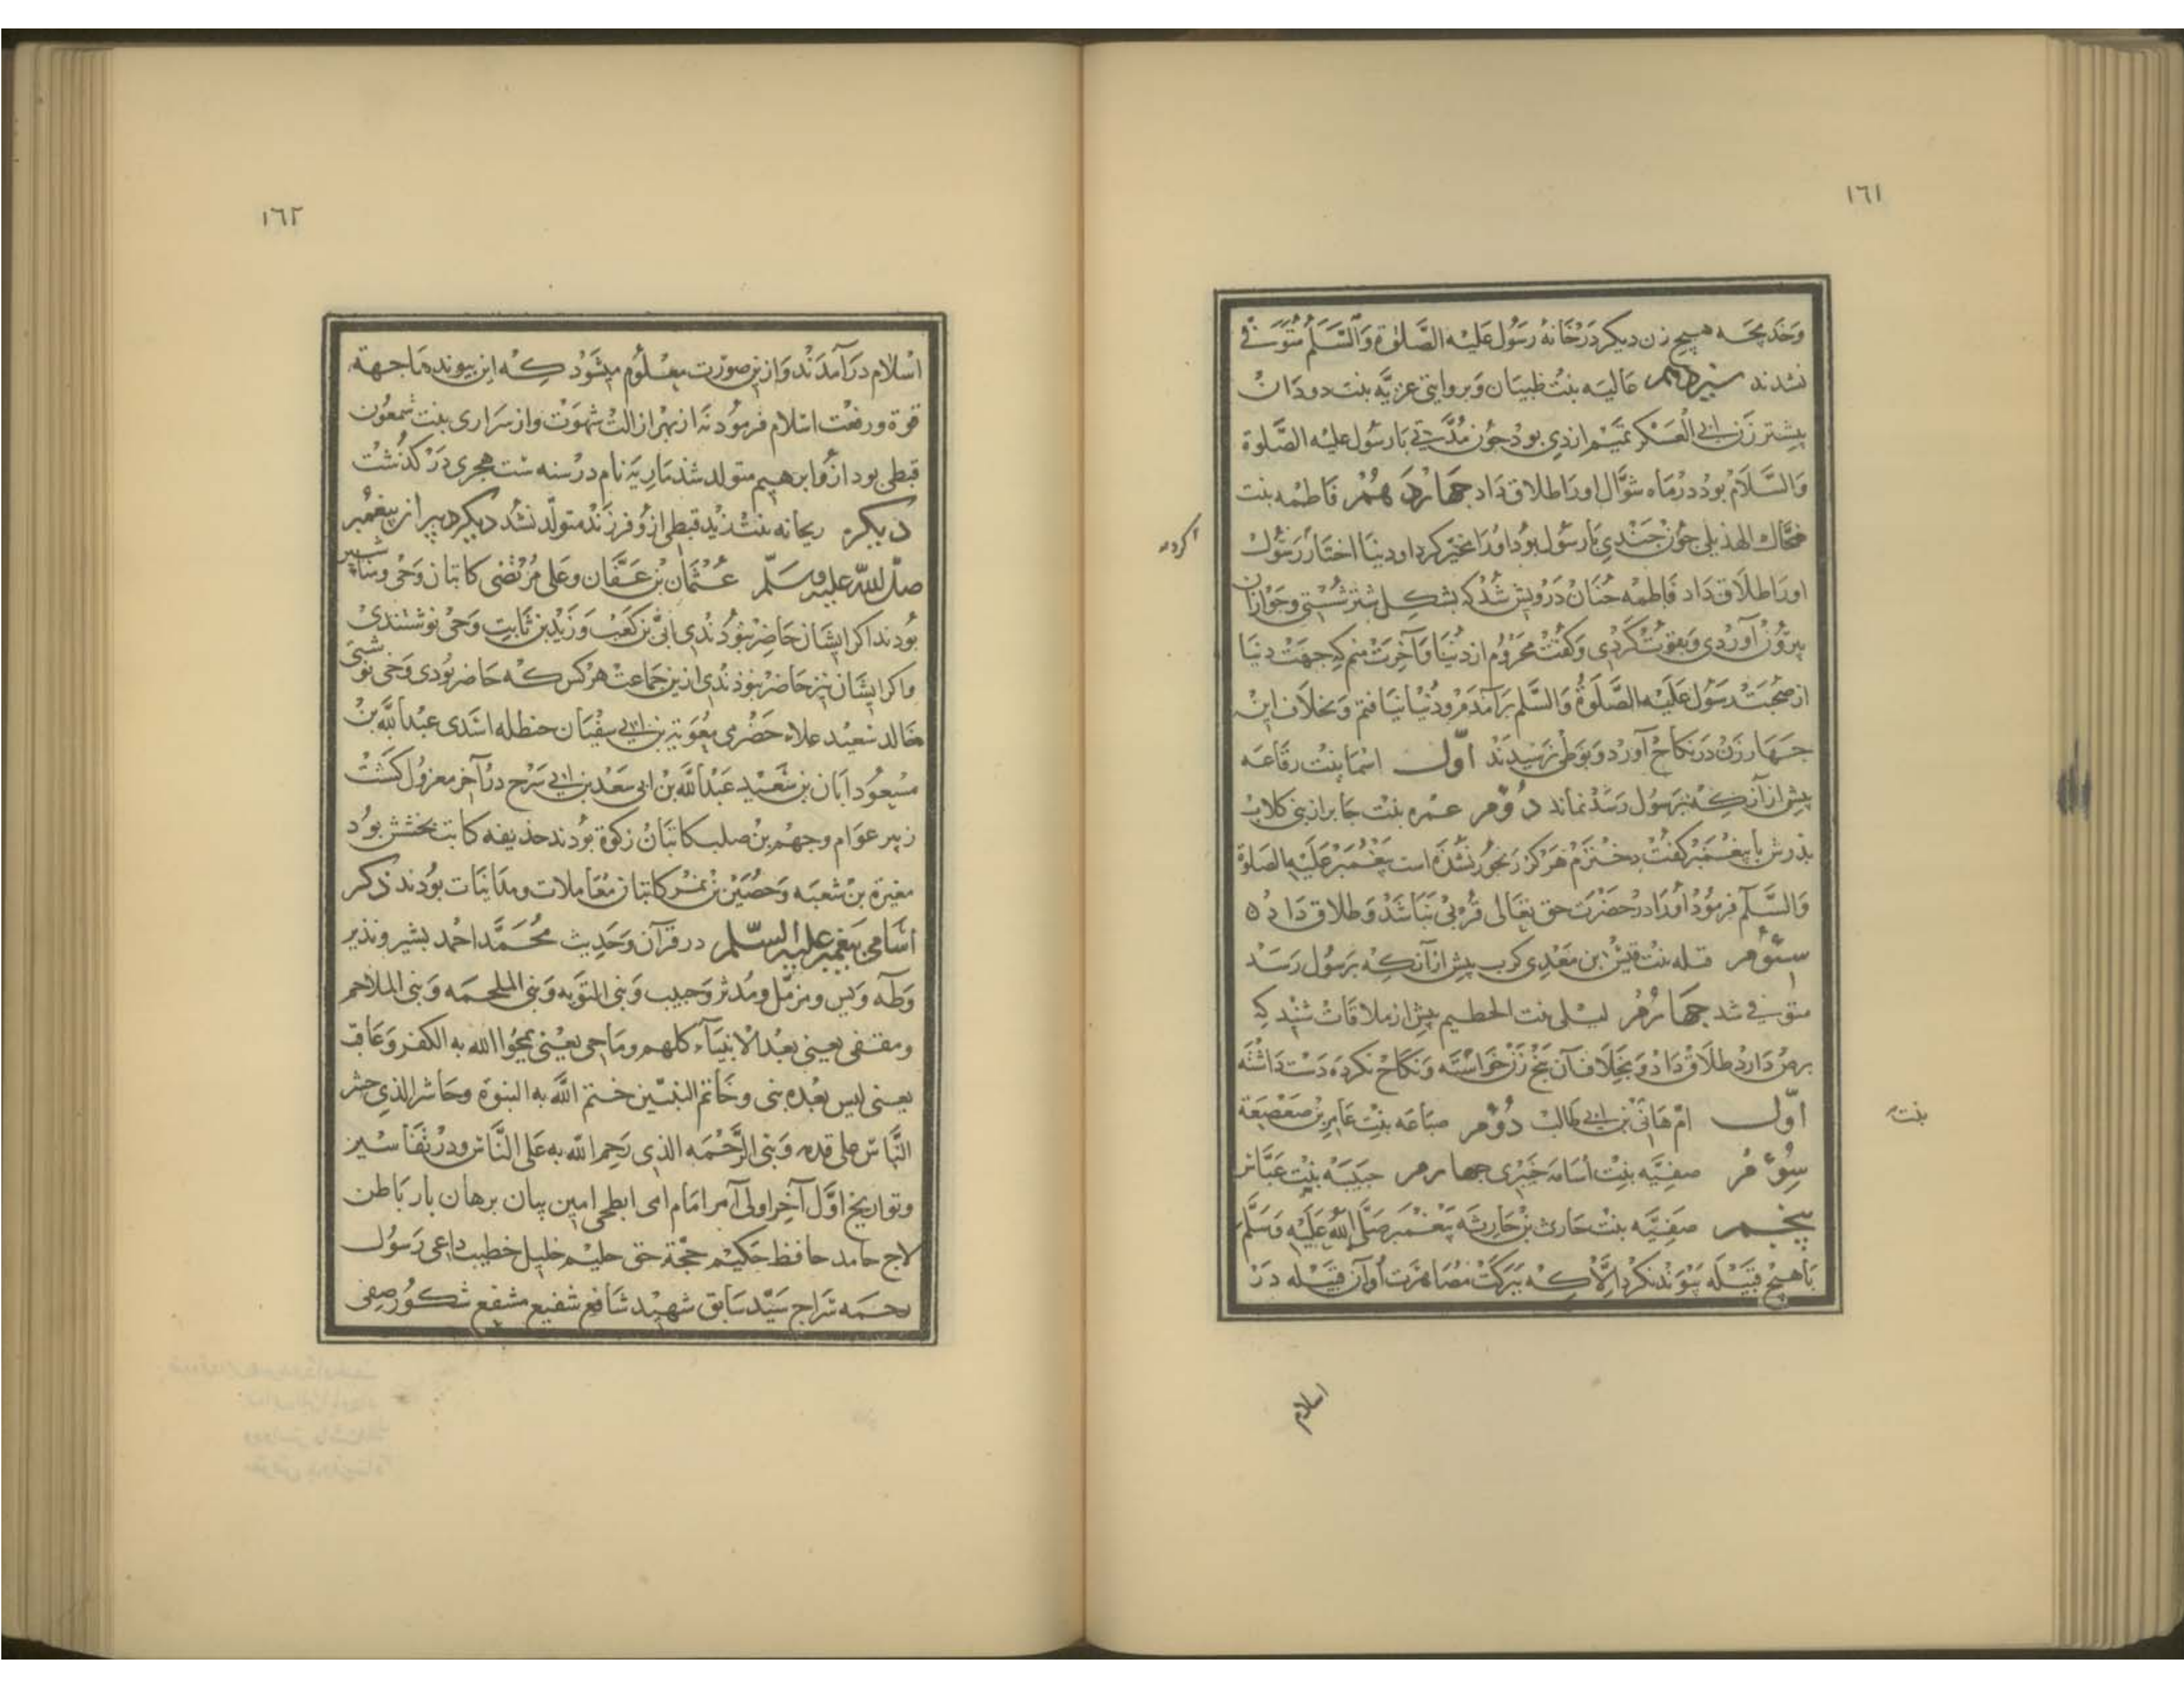 ١٦١
وخديجه هيچ زن ديكر در خانهٔ رسول عليه الصلوة والسلم متوفى
نشدند سيزدهم عاليه بنت ظبيان وبروايتى عزيّه بنت دودان
پيشتر زن ابى العسكر تميم ازدى بود چون مدّتى با رسول عليه الصّلوة
والسّلام بود در ماه شوّال اورا طلاق داد چهاردهم فاطمه بنت
ضحّاك الهذيلى چون چندى با رسول بود اورا مخيّر كرد او دنيا اختار رسول
اورا طلاق داد فاطمه چنان درويش شد كه پشكل شتر شستى وجو ازان
بيرون آوردى وبقوت كردى وكفت محروم از دنيا وآخرت منم كه جهت دنيا
از صحبت رسول عليه الصّلوة والسّلم برآمدم ودنيا نيافتم وبخلاف اين
چهار زن در نكاح آورد وبوطى نرسيدند اوّل اسما بنت رفاعه
پيش از آن كه برسول رسد نماند دوّم عمره بنت جابر از بنى كلاب
پدرش با پيغمبر كفت دخترم هركز رنجور نشده است پيغمبر عليه الصلوة
والسّلم فرمود اورا در حضرت حق تعالى قربى نباشد وطلاق داد ٥
سوّم قتله بنت قيس ابن معدى كرب پيش از آن كه برسول رسد
متوفى شد چهارم ليلى بنت الحطيم پيش از ملاقات شنيد كه
برص دارد طلاق داد وبخلاف آن پنج زن خواسته ونكاح نكرده دست داشته
اوّل امّ هانى بن ابى طالب دوّم ضباعه بنت عامر بن صعصعة
سوّم صفيّه بنت اسامه خبرى چهارم حبيبه بنت عبّاس
پنجم صفيّه بنت حارث بن حارثه پيغمبر صلّى اللّه عليه وسلّم
با هيچ قبيله پيوند نكرد الّا كه ببركت مصاهرت او آن قبيله در
كرده
بنت
اسلام
١٦٢
اسلام درآمدند واز ين صورت معلوم ميشود كه اين پيوندها جهة
قوة ورفعت اسلام فرمود نه از بهر ازالت شهوت واز سرارى بنت شمعون
قبطى بود ازو ابرهيم متولد شد ماريه نام در سنه ست هجرى دركذشت
ديكره ريحانه بنت زيد قبطى ازو فرزند متولّد نشد ديكر دبير از پيغمبر
صلّى اللّه عليه وسلّم عثمان بن عفّان وعلى مرتضى كاتبان وحى ومناشير
بودند اكر ايشان حاضر نبودندى ابىّ بن كعب وزيد بن ثابت وحى نوشتندى
واكر ايشان نيز حاضر نبودندى ازين جماعت هركس كه حاضر بودى وحى نوشتى
خالد سعيد علاء حضرمى معوية بن ابى سفيان حنظله اسدى عبد اللّه بن
مسعود ابان بن سعيد عبد اللّه بن ابى سعد بن ابى سرح در آخر معزول كشت
زبير عوام وجهم بن صلب كاتبان زكوة بودند حذيفه كاتب بخشش بود
مغيرة بن شعبه وحصين بن نمير كاتبان معاملات ومداينات بودند ذكر
اسامى پيغمبر عليه السّلم در قرآن وحديث محمّد احمد بشير ونذير
وطه ويس ومزمّل ومدثر وحبيب ونبى التوبه ونبى الملحمه ونبى الملاحم
ومقتفى يعنى بعد الانبياء كلهم وماحى يعنى يمحو اللّه به الكفر وعاقب
يعنى ليس بعده نبى وخاتم النبيّين ختم اللّه به النبوة وحاشر الذى حشر
النّاس على قدمه ونبى الرّحمه الذى رحم اللّه به على النّاس ودر تفاسير
وتواريخ اوّل آخر اولى آمر امام امى ابطحى امين بيان برهان بار باطن
حامد حافظ حكيم حجّة حق حليم خليل خطيب داعى رسول
رحمه سراج سيّد سابق شهيد شافع شفيع مشفع شكور صفى